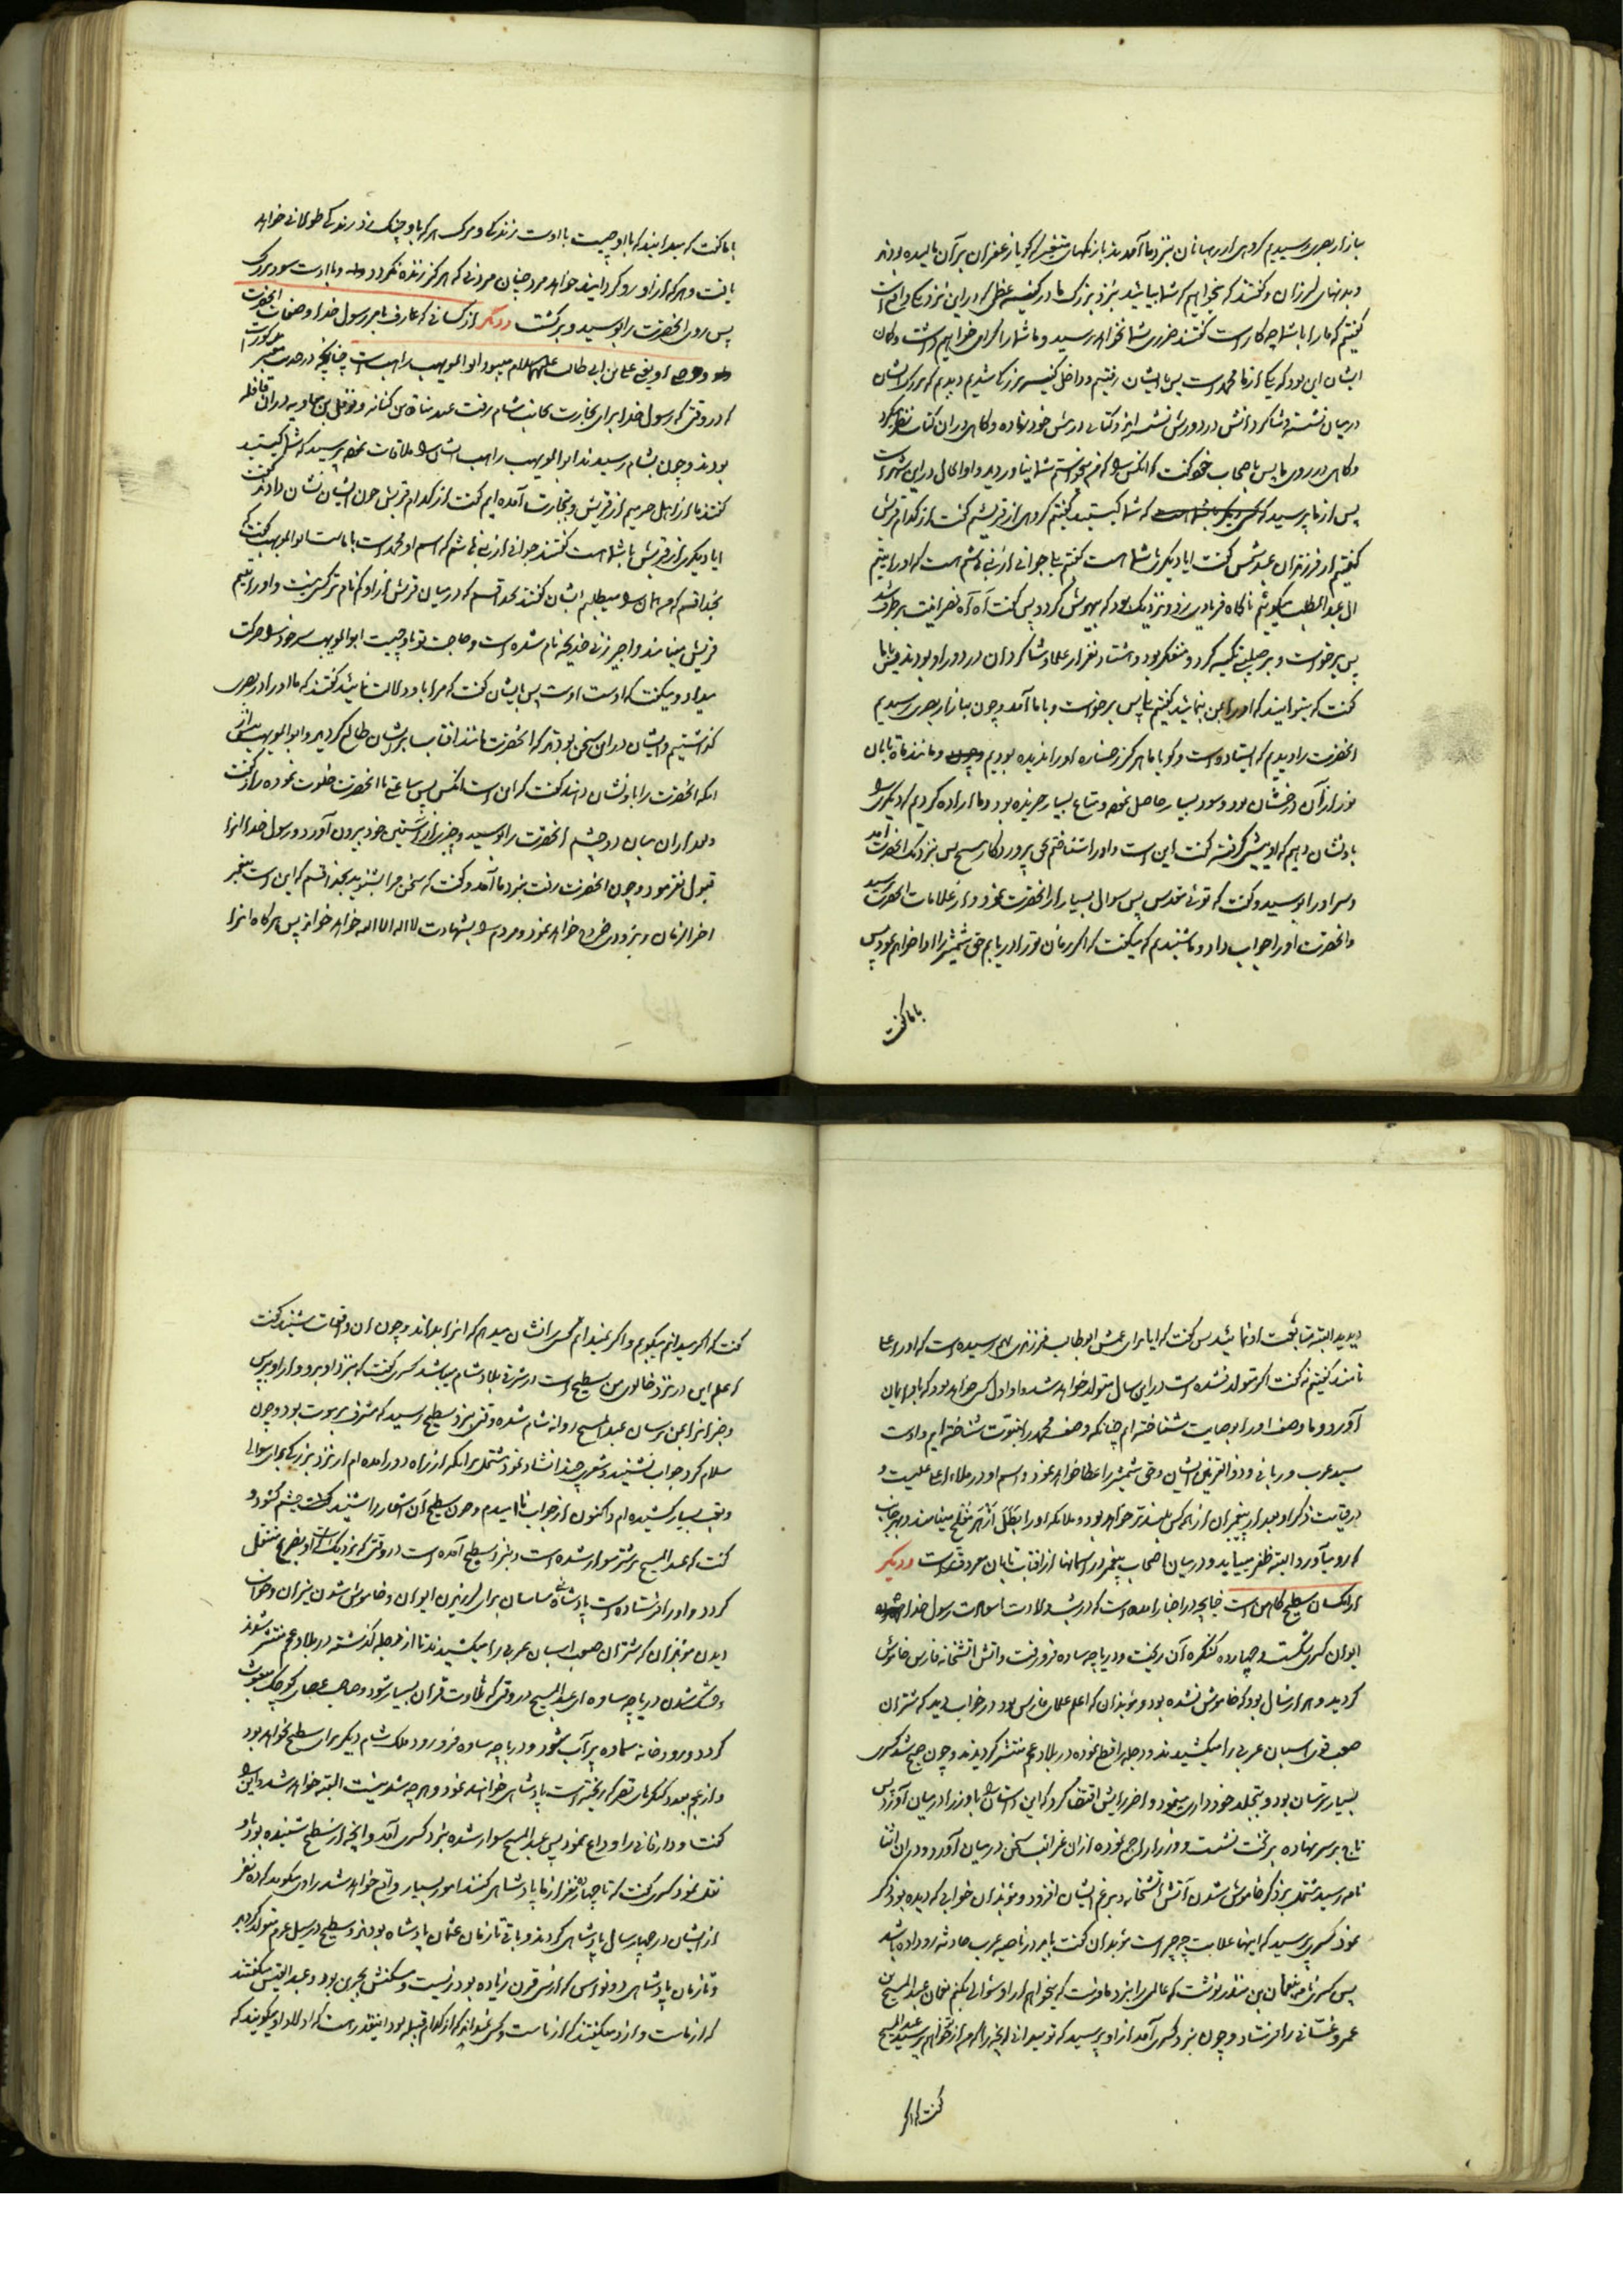 ببازار بصری رسیدیم گروهی از رهبانان بنزد ما آمدند با رنگهای متغیر که گویا زعفران بر آن مالیده بودند
و بدنهای لرزان و گفتند که میخواهیم که شما بیائید بنزد بزرگ ما در کنیسه عظمی که در این نزدیکی واقع است
گفتیم که ما را با شما چه کار است گفتند ضرری بشما نخواهد رسید و ما شما را اکرام خواهیم داشت و گمان
ایشان این بود که یکی از ما محمد است پس با ایشان رفتیم و داخل کنیسه بزرگ شدیم دیدیم که بزرگ ایشان
در میان نشسته و شاگردانش در دورش نشسته اند و کتابی در پیش خود نهاده و گاهی در آن کتاب نظر میکرد
و گاهی در روی ما پس باصحاب خود گفت که آنکس را که من میخواستم شما نیاوردید و او الحال در این شهر است
پس از ما پرسید که شما کیستید گفتیم گروهی از قریشیم گفت از کدام قریش
گفتیم از فرزندان عبد شمس گفت ایا دیگری با شما هست گفتیم بلی جوانی از بنی هاشم هست که او را یتیم
ال عبدالمطلب میگوئیم ناگاه فریادی بزد و نزدیک بود که بیهوش گردد پس گفت آه آه نصرانیت برطرف شد
پس برخواست و بر صلیبی تکیه کرد و متفکر بود و هشتاد نفر از علما و شاگردان در دور او بودند پس با ما
گفت که میتوانید که او را بمن بنمائید گفتیم بلی پس برخواست و با ما آمد و چون ببازار بصری رسیدیم
انحضرت را دیدیم که ایستاده است و گویا ما هرگز رخساره او را ندیده بودیم و مانند ماه تابان
نور از آن درخشان بود و سود بسیار حاصل نموده و متاع بسیار خریده بود و ما اراده کردیم که دیگری را
باو نشان دهیم که او پیشی گرفته گفت این است و او را شناختم بحق پروردگار مسیح پس بنزدیک انحضرت آمد
و سر او را بوسید و گفت که توئی مقدس پس سوال بسیار از انحضرت نمود و از علامات انحضرت پرسید
و انحضرت او را جواب داد و ما شنیدیم که میگفت که اگر زمان تو را دریابم حق شمشیر را ادا خواهم نمود پس
با ما گفت
با ما گفت که میدانید که با او چیست با اوست زندگی و مرگ هر که باو چنگ زند زندگی طولانی خواهد
یافت و هر که از او رو گرداند خواهد مرد چنان مردنی که هرگز زنده نگردد و با اوست سود بزرگ
پس روی انحضرت را بوسید و برگشت و دیگر از کسانی که عارف بامر رسول خدا و صفات انحضرت
و وصی او یعنی علی بن ابی طالب علیهما السلام میبود ابوالمویهب راهب است چنانچه در حدیث معتبر مذکور است
که در وقتی که رسول خدا برای تجارت بجانب شام رفت عبد مناة بن کنانه و نوفل بن معاویه در ان قافله
بودند و چون بشام رسیدند ابوالمویهب راهب ایشان را ملاقات نموده پرسید که شما کیستید
گفتند ما از اهل حرمیم از قریش و بتجارت آمده ایم گفت از کدام قریش چون ایشان نشان دادند گفت
ایا دیگری از قریش با شما هست گفتند جوانی از بنی هاشم که اسم او محمد است با ماست ابوالمویهب گفت که
بخدا قسم که من همان را میطلبم ایشان گفتند بخدا قسم که در میان قریش از او کم نام تر کسی نیست و او را یتیم
قریش مینامند و اجیر زنی خدیجه نام شده است و حاجت تو باو چیست ابوالمویهب سر خود را حرکت
میداد و میگفت که اوست اوست پس بایشان گفت که مرا باو دلالت نمائید گفتند که ما او را در بصری
گذاشتیم و ایشان در این سخن بودند که انحضرت مانند افتاب بر ایشان طالع گردید و ابوالمویهب پیش از
انکه انحضرت را باو نشان دهند گفت که این است انکس پس ساعتی با انحضرت خلوت نموده راز گفت
و بعد از ان میان دو چشم انحضرت را بوسید و چیزی از آستین خود بیرون آورد و رسول خدا انرا
قبول نفرمود و چون انحضرت رفت بنزد ما آمد و گفت که سخن مرا بشنوید بخدا قسم که این است پیغمبر
اخرالزمان و بزودی خروج خواهد نمود و مردم را بشهادت لا اله الا الله خواهد خواند پس هر گاه انرا
دیدید البته متابعت او نمائید پس گفت که ایا برای عمش ابوطالب فرزندی بهم رسیده است که او را علی
نامند گفتیم نه گفت اگر متولد نشده است در این سال متولد خواهد شد و او اول کسی خواهد بود که باو ایمان
آورد و ما وصف او را بوصایت شناخته ایم چنانکه وصف محمد را بنبوت شناخته ایم و اوست
سید عرب و ربانی و ذوالقرنین ایشان و حق شمشیر را عطا خواهد نمود و اسم او در ملاء اعلا علیست و
در قیامت ذکر او بعد از پیغمبران از همه کس بلندتر خواهد بود و ملائکه او را بَطَلِ أزهَرِ مُفلِح مینامند و بهر جانب
که رو میآورد البته ظفر مییابد و در میان اصحاب پیغمبر در آسمانها از افتاب تابان معروفتر است و دیگر
از انکسان سطیح کاهن است چنانچه در اخبار آمده است که در شب ولادت رسول خدا
ایوان کسری شکست و چهارده کنگره آن ریخت و دریاچه ساوه فرو رفت و اتش اتشخانه فارس خاموش
گردید و هزار سال بود که خاموش نشده بود و موبدان که اعلم علمای فارس بود در خواب دید که شتران
صعب قوی اسبان عربی را میکشیدند و دجله را قطع نموده در بلاد عجم منتشر گردیدند و چون صبح شد کسری
بسیار ترسان بود و بتجلد خودداری مینمود و اخر رایش اقتضا کرد که این داستان را با وزرا در میان آورد پس
تاج بر سر نهاده بر تخت نشست و وزرا را جمع نموده از ان غرایب سخن در میان آورد و در ان اثنا
نامه رسید مشتمل بر ذکر خاموش شدن آتش اتشخانه و بر غم ایشان افزود و موبدان خوابی که دیده بود ذکر
نمود کسری پرسید که اینها علامت چه چیز است موبدان گفت باید در ناحیه عرب حادثه رو داده باشد
پس کسری نامه بنعمان بن منذر نوشت که عالمی را بنزد ما فرست که میخواهم از او سئوالی بکنم نعمان عبدالمسیح بن
عمرو غسّانی را فرستاد و چون بنزد کسری آمد از او پرسید که تو میدانی انچه را که از تو خواهم پرسید عبدالمسیح
گفت که اگر
گفت که اگر میدانم میگویم و اگر نمیدانم کسی را نشان میدهم که انرا بداند و چون ان واقعات شنید گفت
که علم این در نزد خالوی من سطیح است در مشرق بلاد شام میباشد کسری گفت که بنزد او برو و از او بپرس
و خبر انرا بمن برسان عبدالمسیح روانه شام شده وقتی بنزد سطیح رسید که مشرف بر موت بود و چون
سلام کرد جواب نشنید و شعری چند انشاد نمود مشتمل بر انکه از راه دور آمده ام از نزد بزرگی برای سوالی
و تعب بسیار کشیده ام و اکنون از جواب ناامیدم و چون سطیح آن اشعار را شنید چشم گشود و
گفت که عبدالمسیح بر شتر سوار شده است و بنزد سطیح آمده است در وقتی که نزدیک است او بضریح منتقل
گردد و او را فرستاده است پادشاه بنی ساسان برای لرزیدن ایوان و خاموش شدن نیران و خواب
دیدن موبدان که شتران صعب اسبان عربی را میکشیدند تا از دجله گذشته در بلاد عجم منتشر شوند
و خشک شدن دریاچه ساوه ای عبدالمسیح در وقتی که تلاوت قرآن بسیار شود و صاحب عصای کوچک مبعوث
گردد و رودخانه سماوه پر آب شود و دریاچه ساوه فرو رود ملک شام دیگر برای سطیح نخواهد بود
و از عجم بعدد کنگرهای قصر که ریخته است پادشاهی خواهند نمود و هر چه شدنیست البته خواهد شد و این را
گفت و دار فانی را وداع نمود پس عبدالمسیح سوار شده بنزد کسری آمد و انچه از سطیح شنیده بود باو
نقل نمود کسری گفت که تا چهارده نفر از ما پادشاهی کنند امور بسیار واقع خواهد شد راوی میگوید که ده نفر
از ایشان در چهار سال پادشاهی کردند و باقی تا زمان عثمان پادشاه بودند و سطیح در سیل عرم متولد گردید
و تا زمان پادشاهی ذو نواس که از سی قرن زیاده بود زیست و مسکنش بحرین بود و عبدالقیس میگفتند
که از ماست و ازد میگفتند که از ماست و کسی نمیداند که از کدام قبیله بود اینقدر هست که اولاد او میگویند که